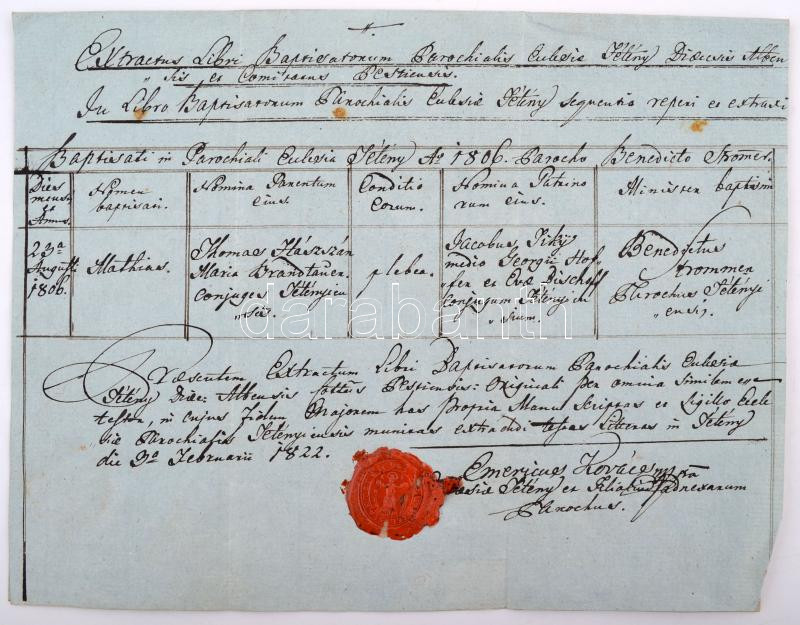 Extractus Libri Baptisatorum Parochialis Eulesiæ Tétény Diæcesis Alben
"sis et Comitatus Pestiensis.
In Libro Baptisatorum Parochialis Eulesiæ Tétény sequentia reperi et extraxi
Baptisati in Parochiali Eulesia Tétény Aº 1806. Parocho Benedicto Krömer.
Dies
mensis
et
Annus.
Nomen
baptisati.
Nomina Parentum
eius.
Conditio
eorum.
Nomina Patrino
rum eius.
Minister baptismi
23ª
Augusti
1806.
Mathias.
Thomas
Maria Brandtauer.
Conjuges Tétényien
"ses.
plebea.
Jacobus
medio Georgii Hof,
"fer et Evæ Bischoff
Conjugum Tétényien
"sium.
Benedictus
Krommer
Parochus Tétényi
"ensis.
Præsentem Extractum Libri Baptisatorum Parochialis Eulesiæ
Tétény Diæc: Albensis Cottus Pestiensis: Originali per omnia similem esse
testor, in cujus Fidem Majorem has propria Manu Scriptas et Sigillo Ecele
siæ Parochialis Tétényiensis munitas extradedi testes Litteras in Tétény
die 3ª Februarii 1822.
Emericus Kovacs mpra
Eulesiæ Tétény et Filialium adnexarum
Parochus.
darabanth